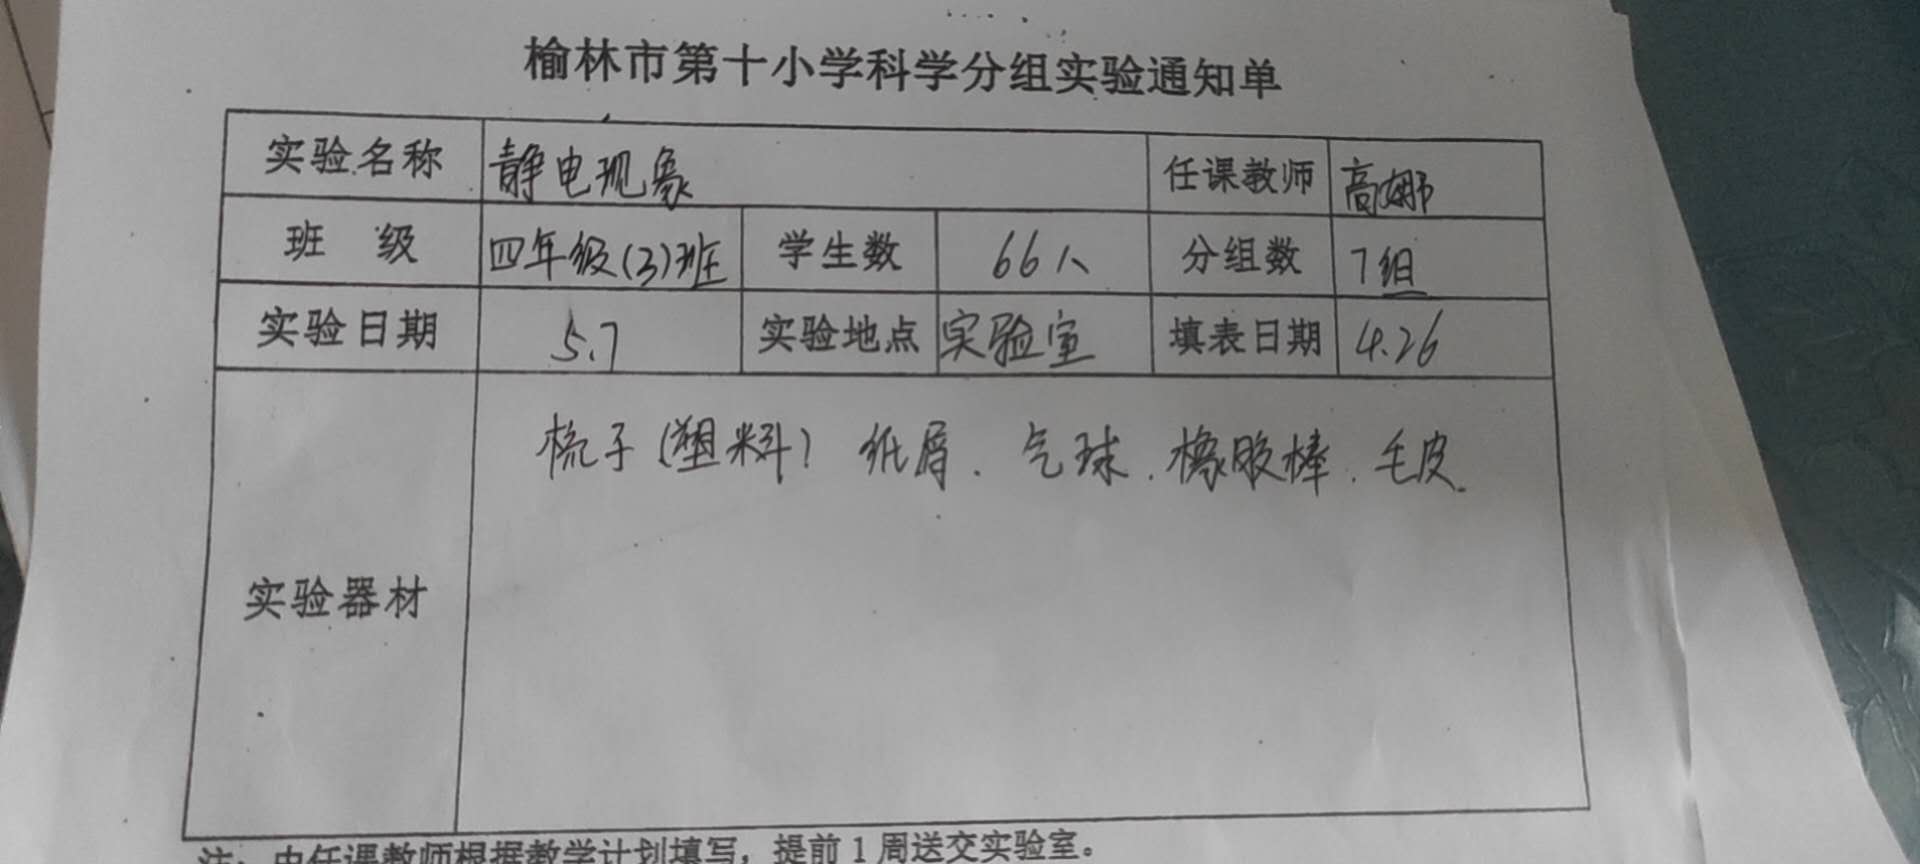 榆林市第十小学科学分组实验通知单
实验名称 静电现象 任课教师 高娜
班 级 四年级(3)班 学生数 66人 分组数 7组
实验日期 5.7 实验地点 实验室 填表日期 4.26
梳子(塑料) 纸屑、气球、橡胶棒、毛皮.
实验器材
注：由任课教师根据教学计划填写，提前1周送交实验室。